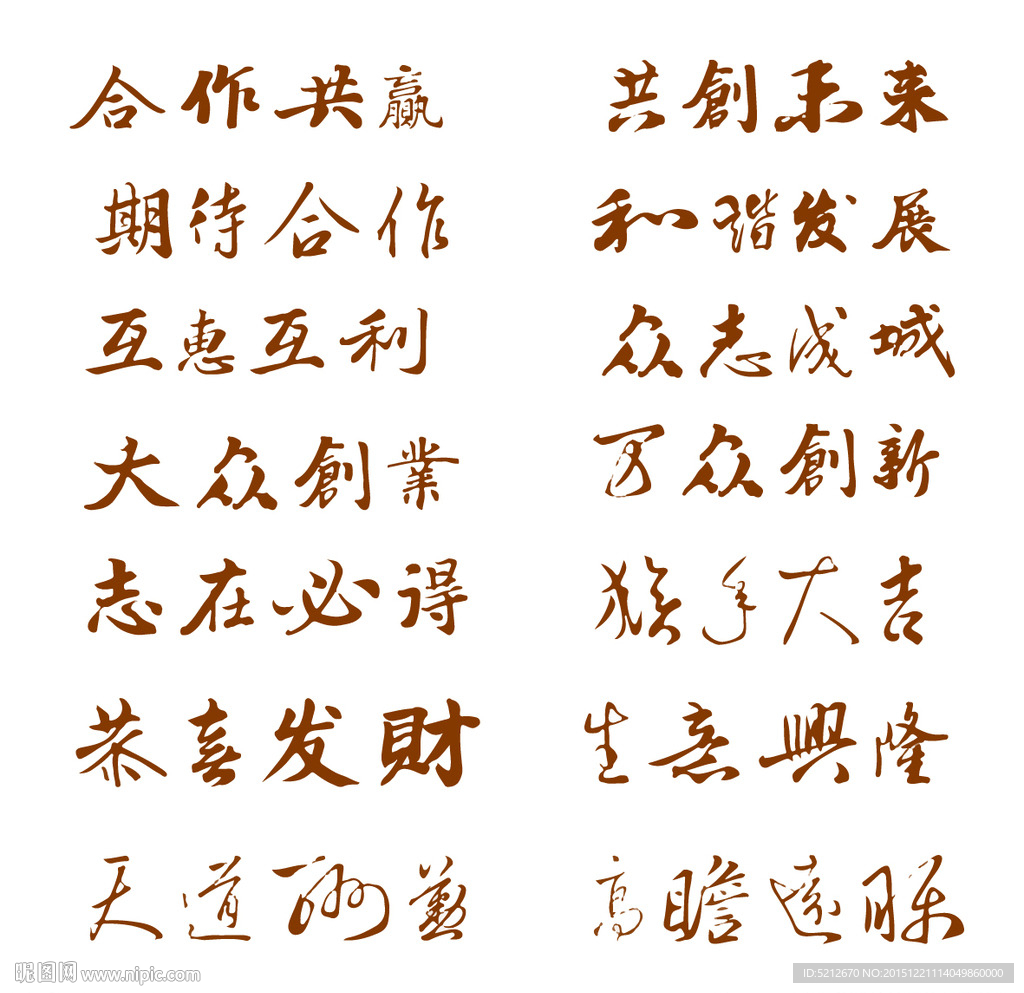 合作共贏 共創未来
期待合作 和谐发展
互惠互利 众志成城
大众創業 万众創新
志在必得 猴年大吉
恭喜发財 生意興隆
天道酬勤 高瞻遠瞩
昵图网 www.nipic.com ID:5212670 NO:20151221114049860000